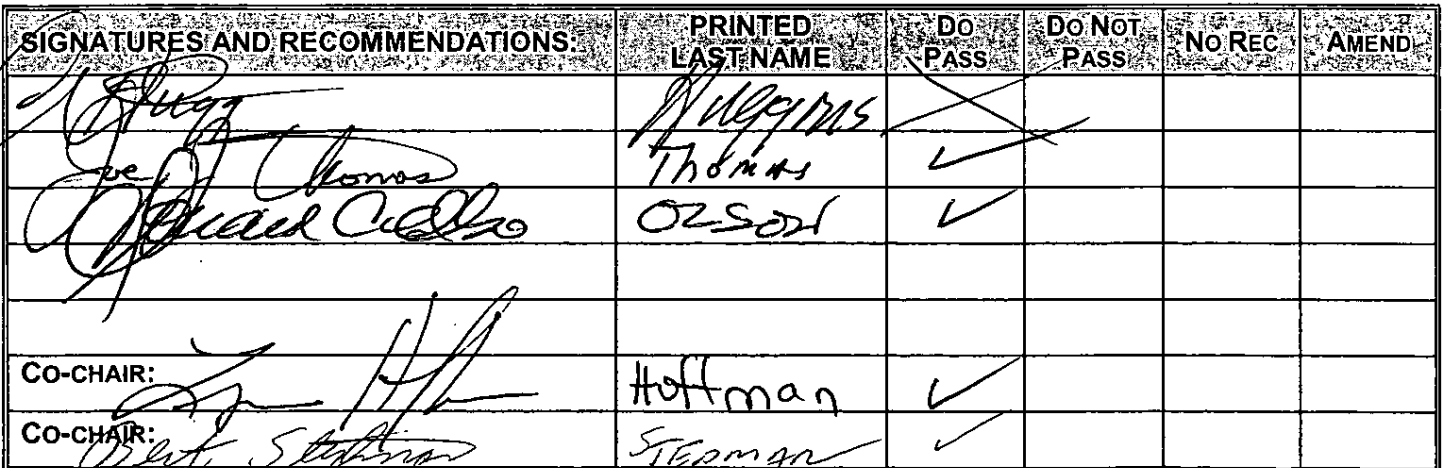 SIGNATURES AND RECOMMENDATIONS: PRINTED LAST NAME DO PASS DO NOT PASS NO REC AMEND
Huggins
Joe Thomas Thomas ✓
OLSON ✓
CO-CHAIR: Hoffman ✓
CO-CHAIR: Bert Stedman STEDMAN ✓